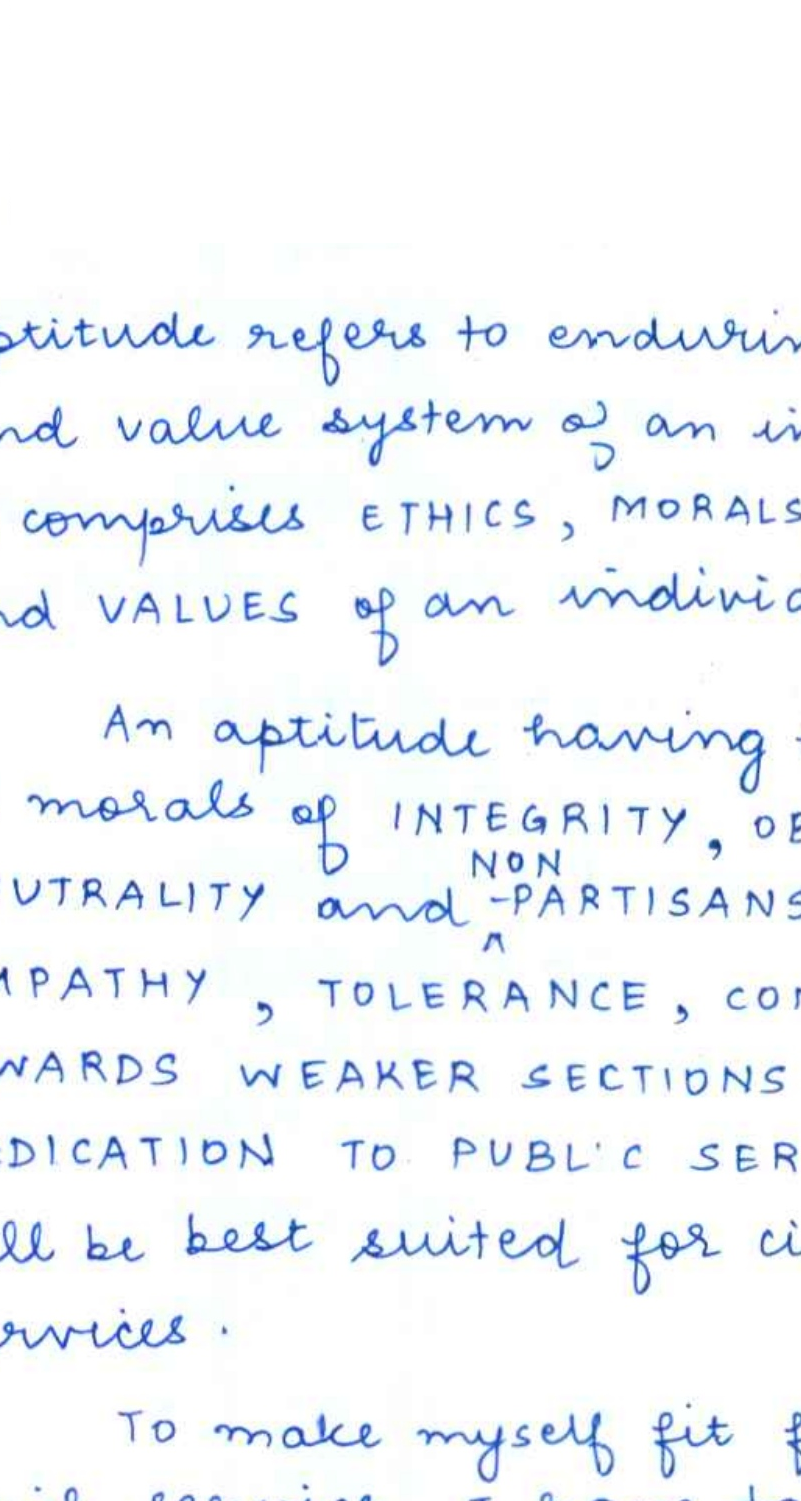 ptitude refers to endurin
nd value system of an in
comprises ETHICS, MORALS
nd VALUES of an individ
An aptitude having
morals of INTEGRITY, OB
UTRALITY and NON-PARTISANS
MPATHY, TOLERANCE, COM
WARDS WEAKER SECTIONS
DICATION TO PUBLIC SER
ll be best suited for ci
ervices.
To make myself fit f